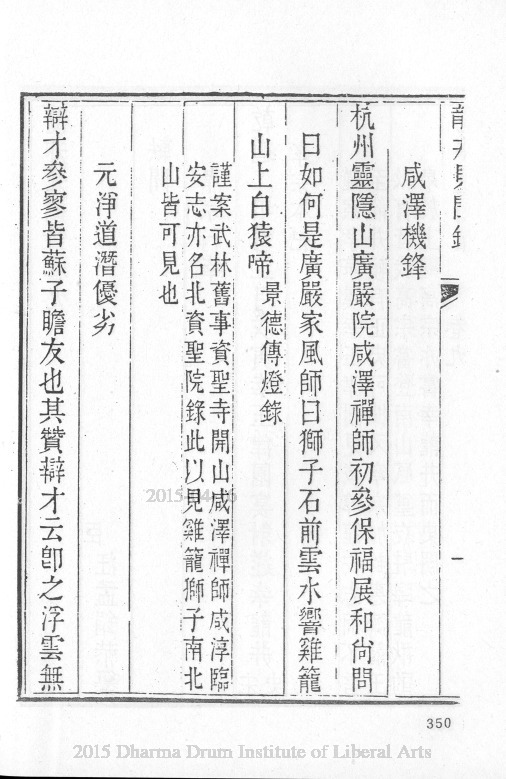 龍井見聞錄
咸澤機鋒
杭州靈隱山廣嚴院咸澤禪師初參保福展和尙問
曰如何是廣嚴家風師曰獅子石前雲水響雞籠
山上白猿啼景德傳燈錄
謹案武林舊事資聖寺開山咸澤禪師咸淳臨
安志亦名北資聖院錄此以見雞籠獅子南北
山皆可見也
元淨道潛優劣
辯才參寥皆蘇子瞻友也其贊辯才云卽之浮雲無
一
350
2015 Dharma Drum Institute of Liberal Arts